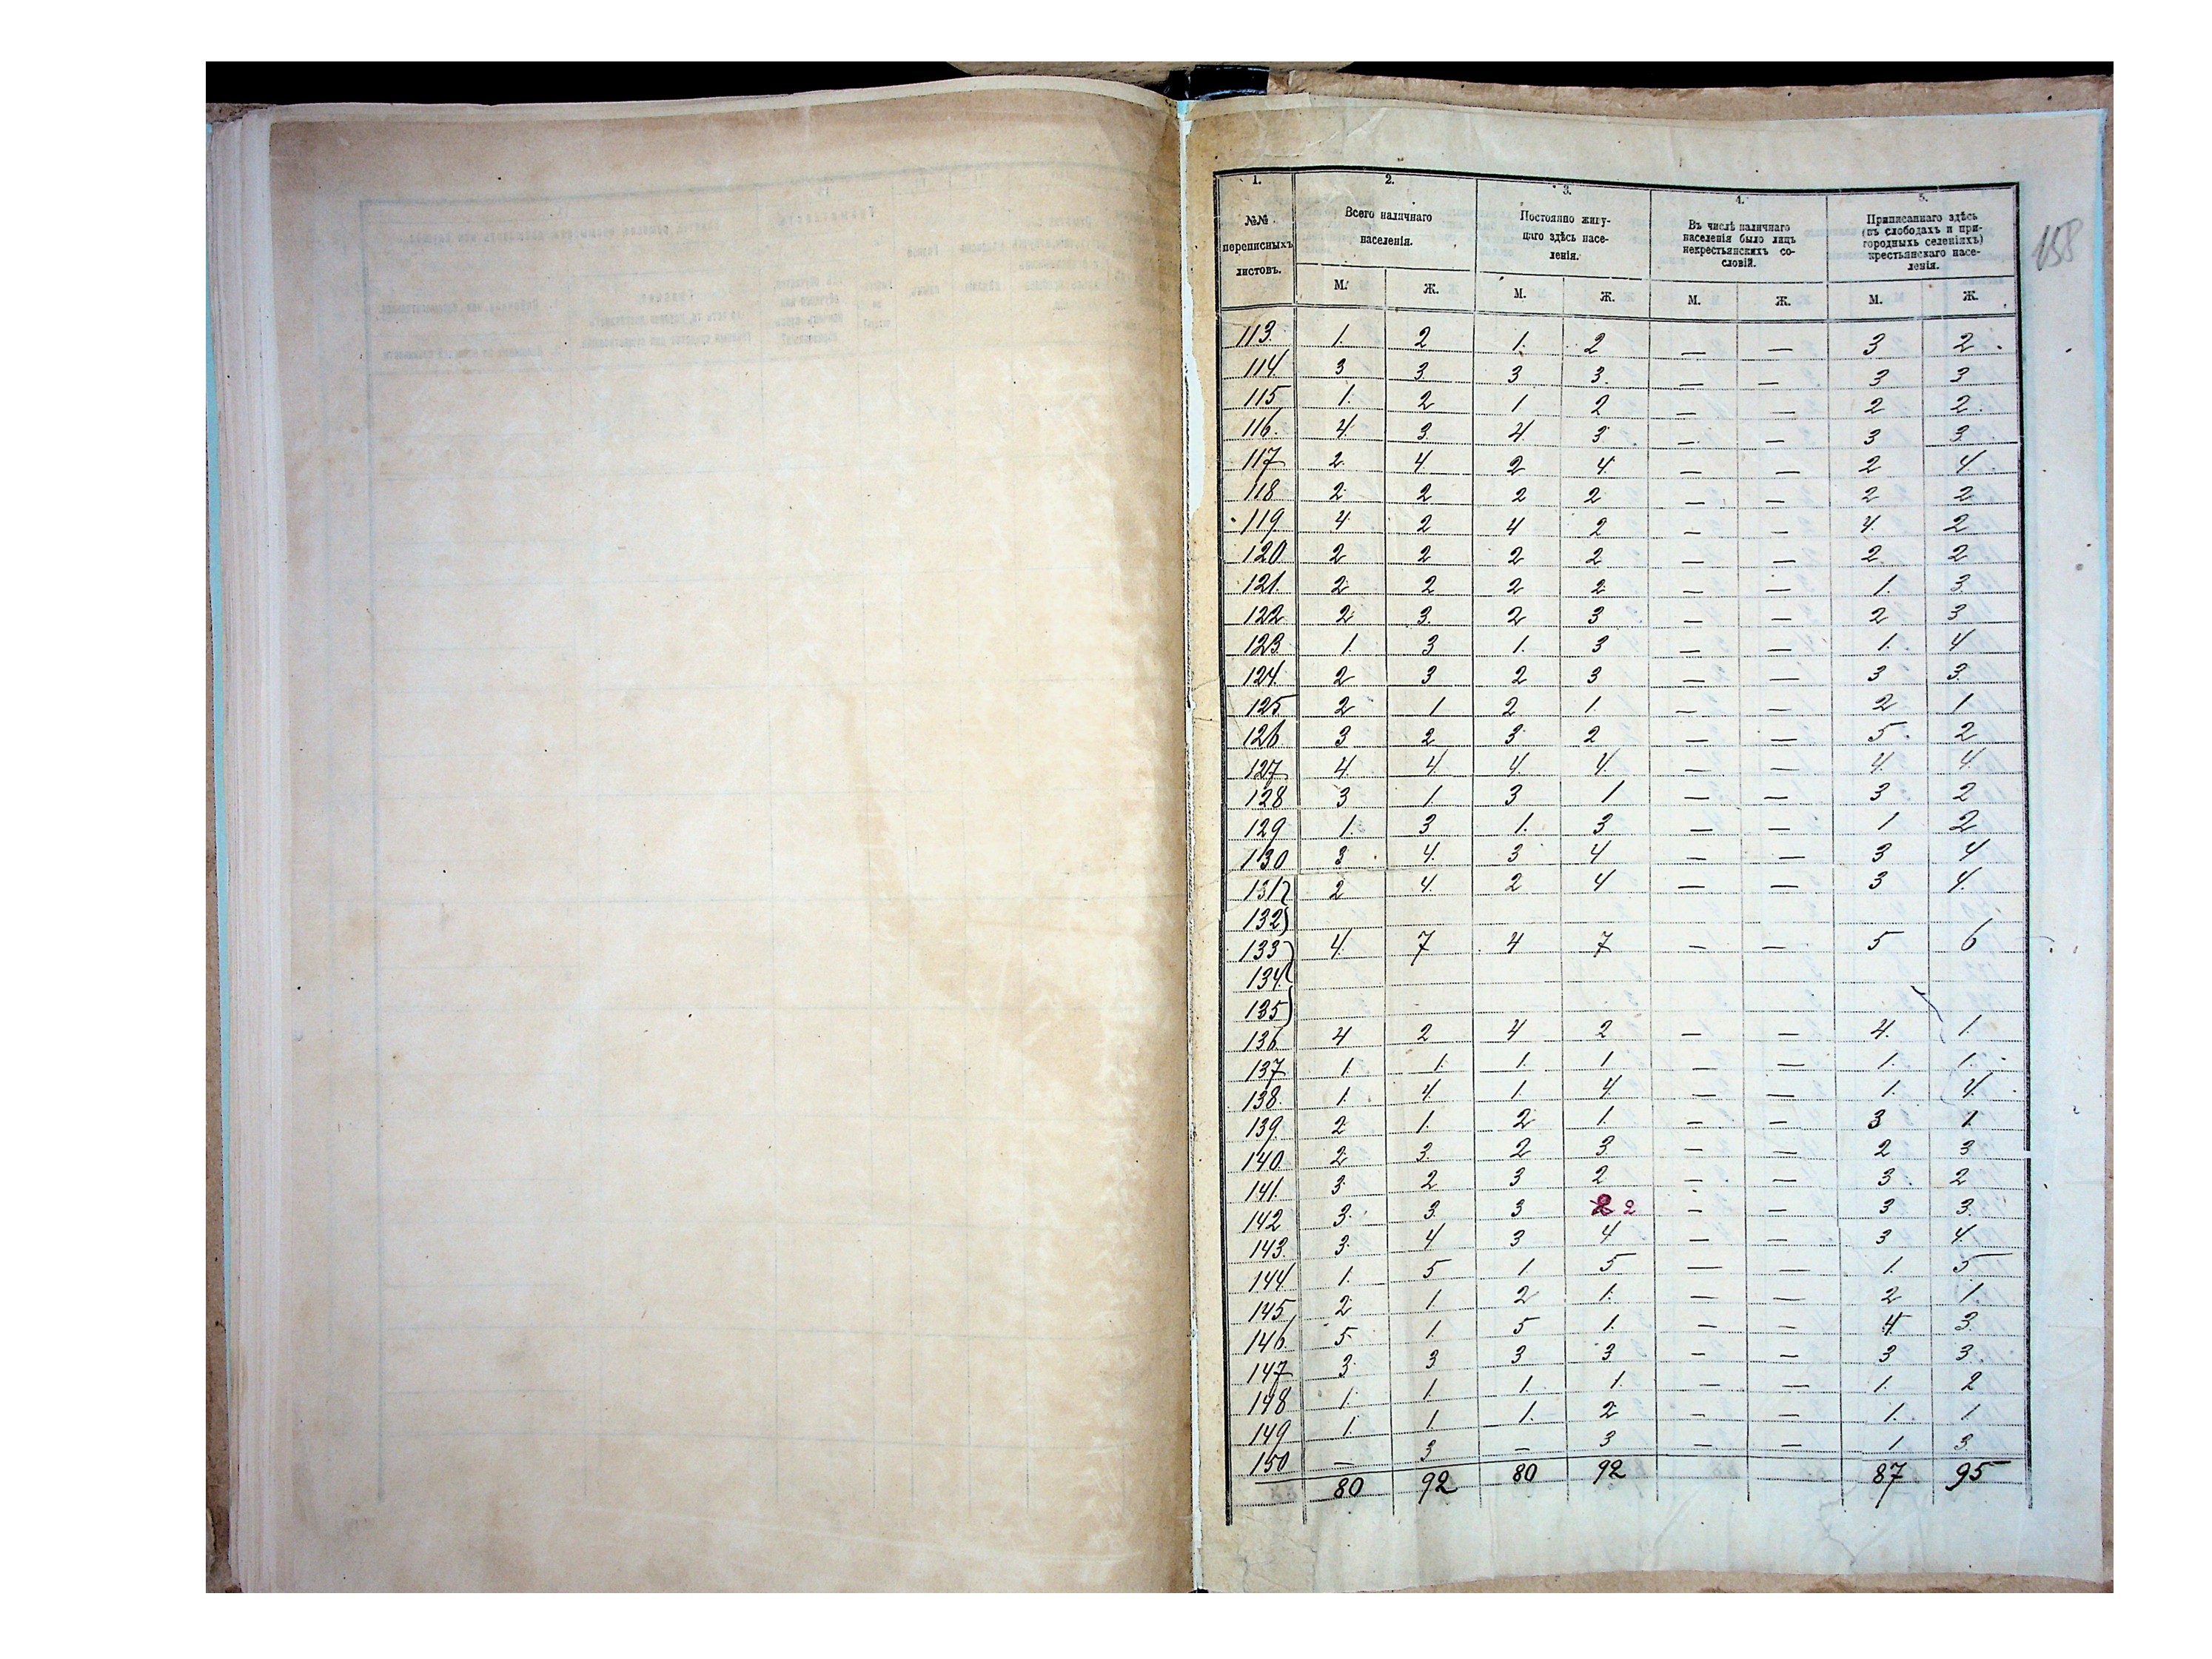 158
1. 2. 3. 4. 5.
№№ переписныхъ листовъ. Всего наличнаго населенія. Постоянно живущаго здѣсь населенія. Въ числѣ наличнаго населенія было лицъ некрестьянскихъ сословій. Приписаннаго здѣсь (въ слободахъ и пригородныхъ селеніяхъ) крестьянскаго населенія.
М. Ж. М. Ж. М. Ж. М. Ж.
113. 1. 2 1. 2 — — 3 2.
114 3 3. 3 3. — — 3 3
115 1. 2 1 2 — — 2 2.
116. 4. 3. 4. 3. — — 3 3.
117 2. 4. 2 4. — — 2 4.
118 2. 2 2 2 — — 2 2
119. 4. 2 4 2 — — 4. 2
120 2 2 2 2 — — 2. 2
121. 2 2 2 2 — — 1. 3.
122 2 3. 2 3. — — 2 3
123. 1. 3 1. 3 — — 1. 4
124. 2 3 2 3 — — 3 3.
125 2 1 2 1. — — 2 1
126. 3 2 3 2 — — 5. 2
127 4. 4. 4. 4. — — 4. 4.
128 3 1. 3 1 — — 3 2
129 1. 3 1. 3 — — 1 2
130 3. 4. 3 4 — — 3 4
131} 2 4. 2. 4 — — 3 4.
132}
133} 4. 7 4 7 — — 5 6
134.}
135}
136. 4 2 4 2 — — 4. 1.
137 1. 1. 1. 1 — — 1. 1.
138. 1. 4. 1. 4. — — 1. 4.
139. 2 1. 2 1. — — 3 1
140. 2. 3. 2 3. — — 2 3
141. 3. 2 3 2 — — 3. 2
142 3. 3. 3 2 — — 3 3.
143. 3. 4 3 4 — — 3 4.
144. 1. 5 1 5 — — 1. 5
145. 2 1. 2 1. — — 2 1.
146. 5 1. 5 1. — — 4 3.
147 3. 3 3 3 — — 3 3.
148 1. 1. 1. 1. — — 1. 2
149 1. 1. 1. 2 — — 1. 1
150 — 3 — 3 — — 1 3
80 92 80 92 87 95